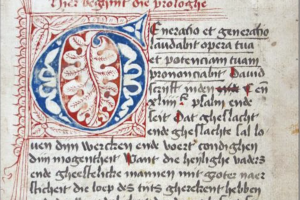 Hier beghint die prologhe
Generatio et generatio
laudabit opera tua
et potenciam tuam
pronunciabit Dauid
scrijft inden
xliiij psalm ende
seit Dat gheslacht
ende gheslachte sal lo
uen dijn wercken ende voert condighen
dijn mogentheit Want die heylighe vaders
ende gheestelicke mannen mit groter naer
sticheit die loep des tijts gherekent hebben